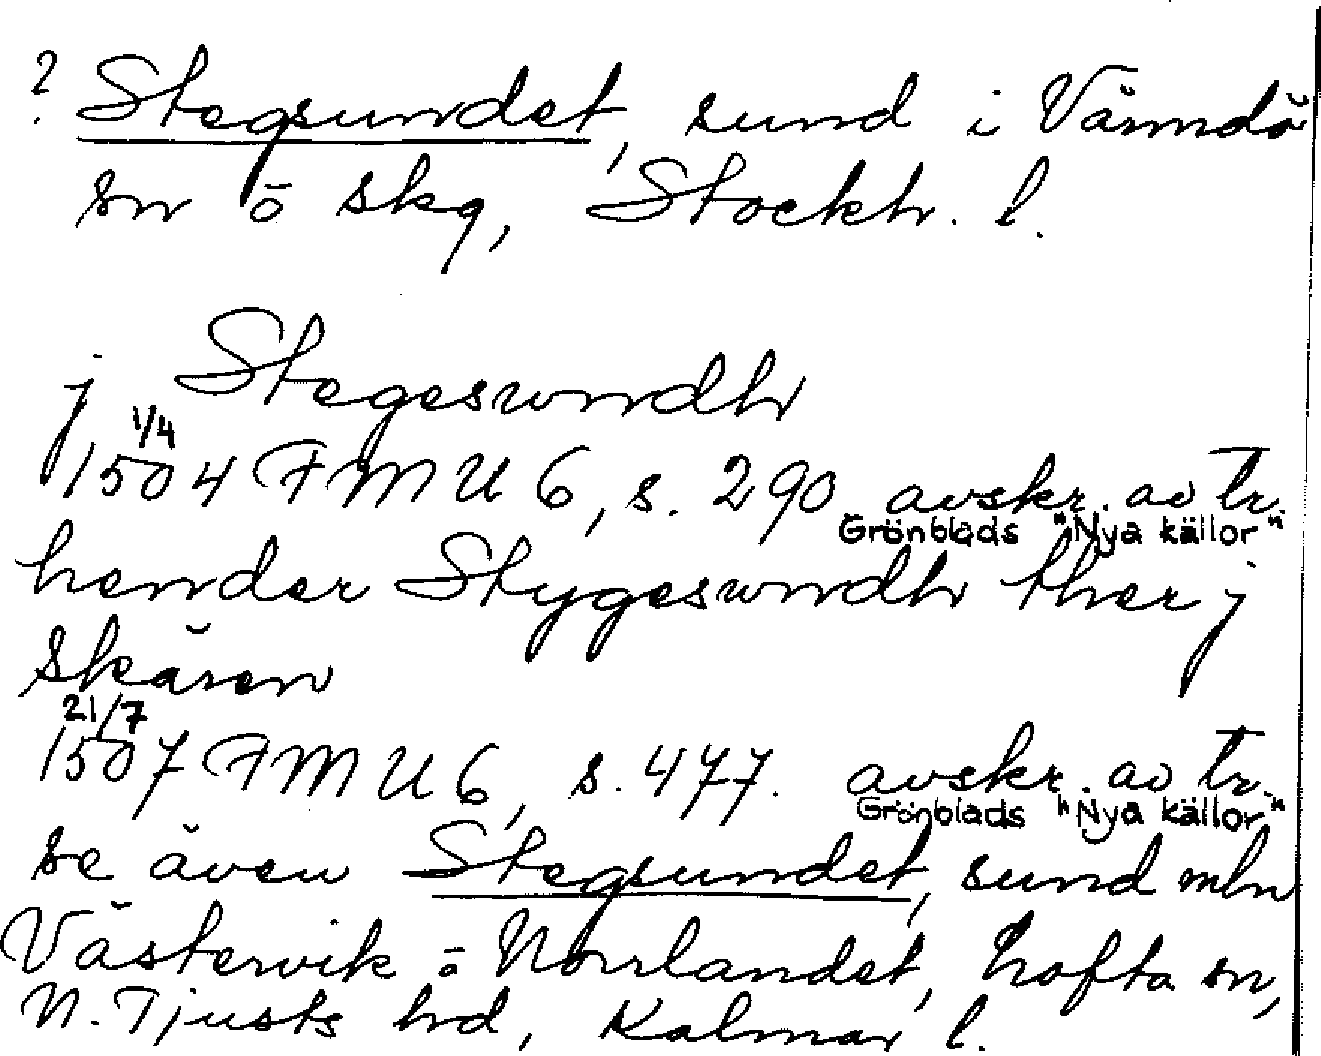 ? Stegsundet, sund i Värmdö
sn ō skg, Stockh. l.
j Stegeswndh
1/4
1504 FMU 6, s. 290 avskr. av tr.
Grönblads "Nya källor"
hender Stygeswndh ther j
skären
21/7
1507 FMU 6, s. 477. avskr. av tr.
Grönblads "Nya källor"
se även Stegsundet, sund mln
Västervik ō Norrlandet, Lofta sn,
N. Tjusts hd, Kalmar l.